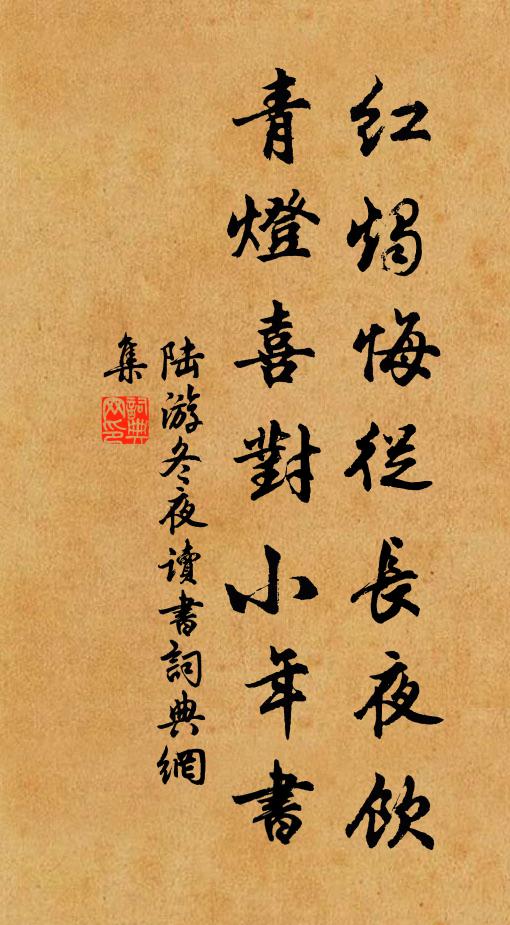 红燭悔從長夜飲
青燈喜對小年書
陆游冬夜讀書詞典網
集
詞典网印